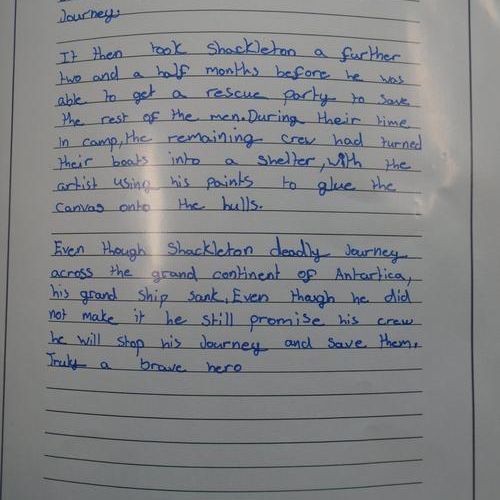 Journey.
It then took Shackleton a further
two and a half months before he was
able to get a rescue party to save
the rest of the men. During their time
in camp, the remaining crew had turned
their boats into a shelter, with the
artist using his paints to glue the
canvas onto the hulls.
Even though Shackleton deadly Journey
across the grand continent of Antartica,
his grand ship sank. Even though he did
not make it he still promise his crew
he will stop his Journey and save them.
Truly a brave hero